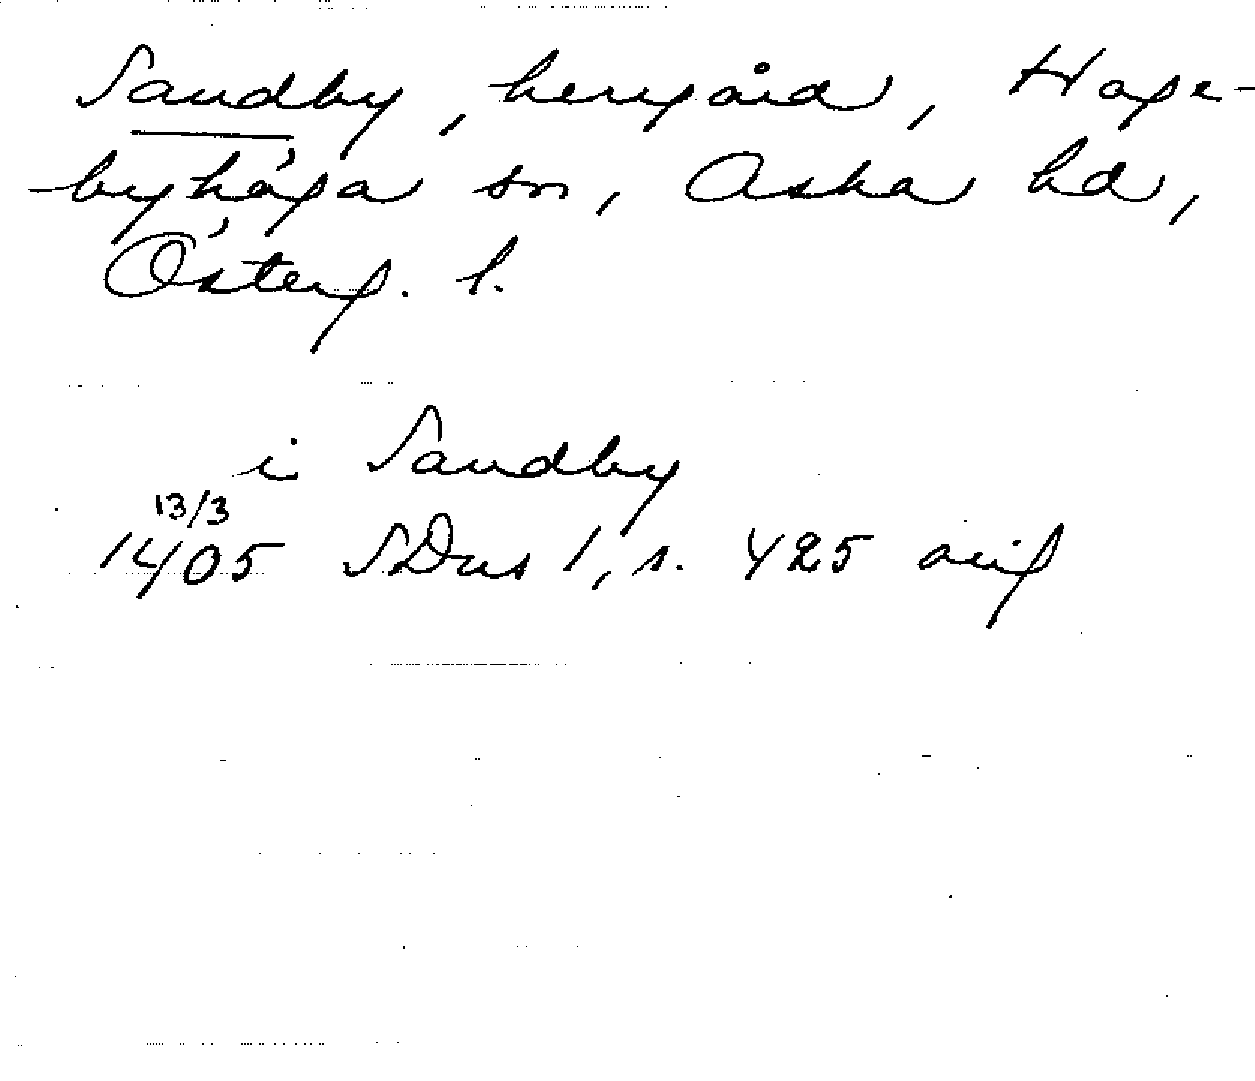 Sandby, herrgård, Hage-
byhöga sn, Aska hd,
Österg. l.
i Sandby
13/3
1405 SDns 1, s. 425 orig